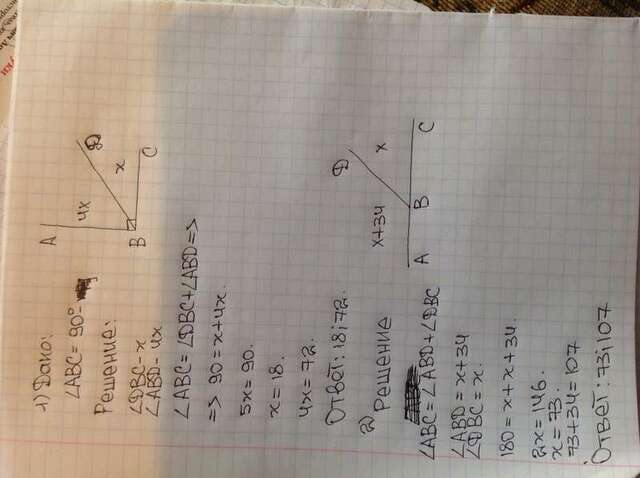 1) Дано:
∠ABC = 90° -
Решение:
∠DBC - x
∠ABD - 4x
∠ABC = ∠DBC + ∠ABD =>
=> 90 = x + 4x.
5x = 90.
x = 18.
4x = 72.
Ответ: 18; 72.
A
4x
D
x
B
C
2) Решение
∠ABC = ∠ABD + ∠DBC
∠ABD = x + 34
∠DBC = x.
180 = x + x + 34.
2x = 146.
x = 73.
73 + 34 = 107
Ответ: 73; 107
D
x+34
x
A
B
C